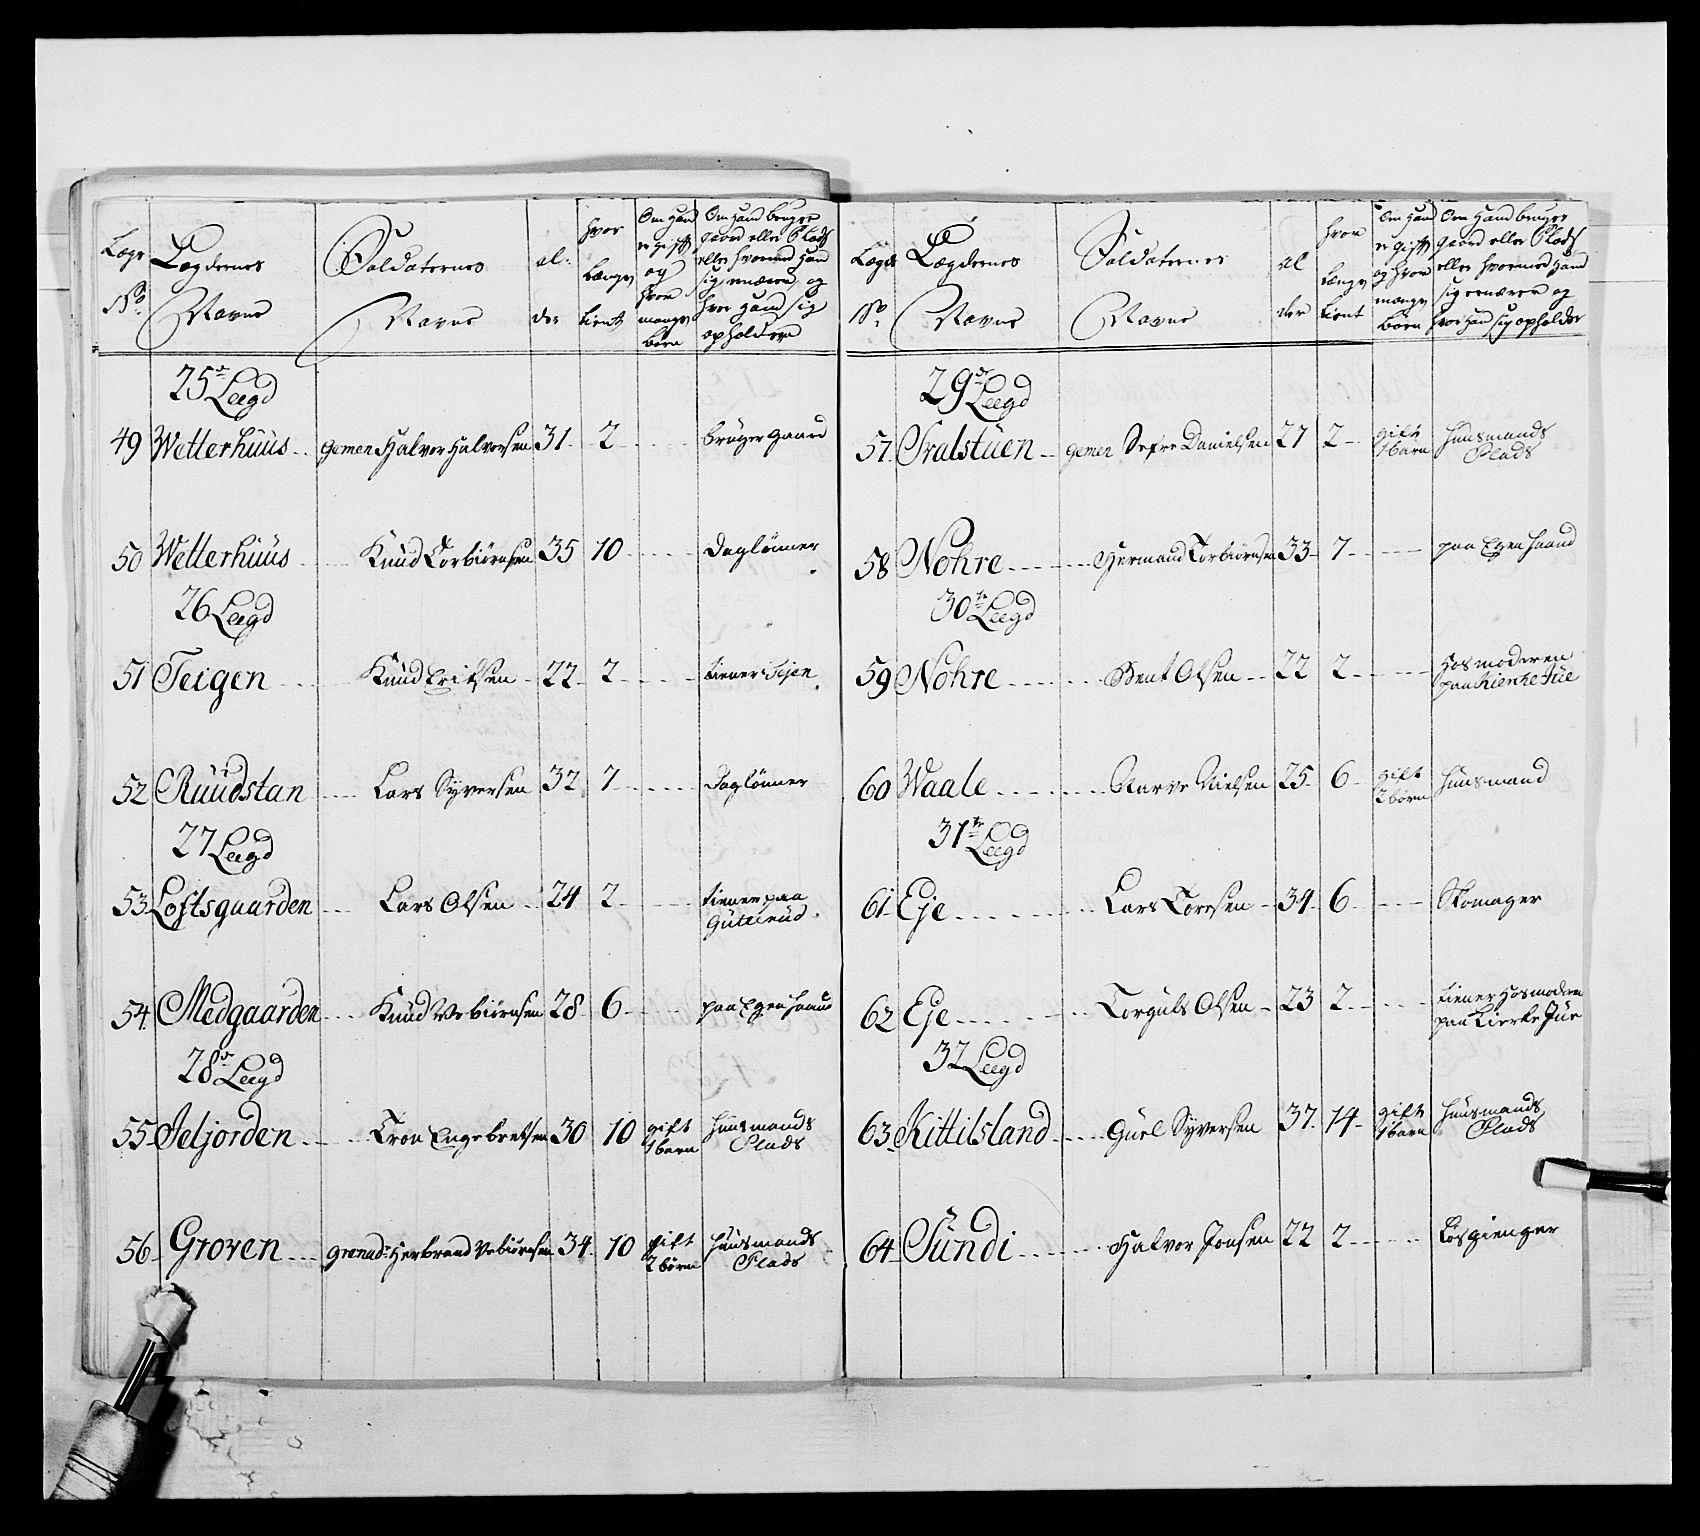 Lægs No. | Lægdernes Navne | Soldaternes Navne | al- der | hvor længe tient | Om hand er gift og hvor mange børn | Om hand bruger gaard eller Plads eller hvormed hand sig ernærer, og hvor hand sig opholder
25de Legd
49 Wetterhuus gemen Halvor Halvorsen 31 2 brüger gaard
50 Wetterhuus Knud Torbiørnsen 35 10 Daglønner
26 Legd
51 Teigen Knud Erichsen 22 2 tiener
52 Rüüdstan Lars Syversen 32 7 Daglønner
27 Legd
53 Loftsgaarden Lars Olsen 24 2 tiener paa
Gütterüd
54 Medgaarden Knud Vebiørnsen 28 6 paa Egen haand
28de Legd
55 Jeljorden Tron Engebretsen 30 10 gift 1 barn huusmands
Plads
56 Groven grenad: Herbrand Vebiørnsen 34 10 gift 2 børn huusmands
Plads
Lægds No. | Lægdernes Navne | Soldaternes Navne | al der | hvor længe tient | Om hand er gift og hvor mange børn | Om hand bruger gaard eller Plads eller hvormed hand sig ernærer og hvor hand sig opholder
29de Legd
57 Tralstüen gemen Sefre Danielsen 27 2 gift 1 barn huusmands
Plads
58 Nohre Hermand Torbiørnsen 33 7 paa Egen haand
30te Legd
59 Nohre Bent Olsen 22 2 hos moderen
paa
60 Waale Narve Nielsen 25 6 gift 2 børn huusmand
31te Legd
61 Eje Lars Toresen 34 6 Skomager
62 Eje Torguls Olsen 23 2 tiener hos moderen
paa
32 Legd
63 Kittilsland Güel Syversen 37 14 gift 1 barn huusmands
Plads
64 Sündi Halvor Jonsen 22 2 Løsgienger